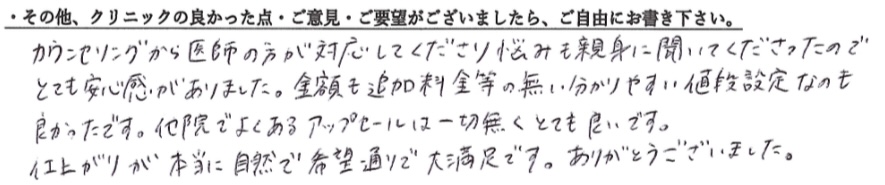 ・その他、クリニックの良かった点・ご意見・ご要望がございましたら、ご自由にお書き下さい。
カウンセリングから医師の方が対応してくださり悩みも親身に聞いてくださったので
とても安心感がありました。金額も追加料金等の無い分かりやすい値段設定なのも
良かったです。他院でよくあるアップセールは一切無くとても良いです。
仕上がりが本当に自然で希望通りで大満足です。ありがとうございました。